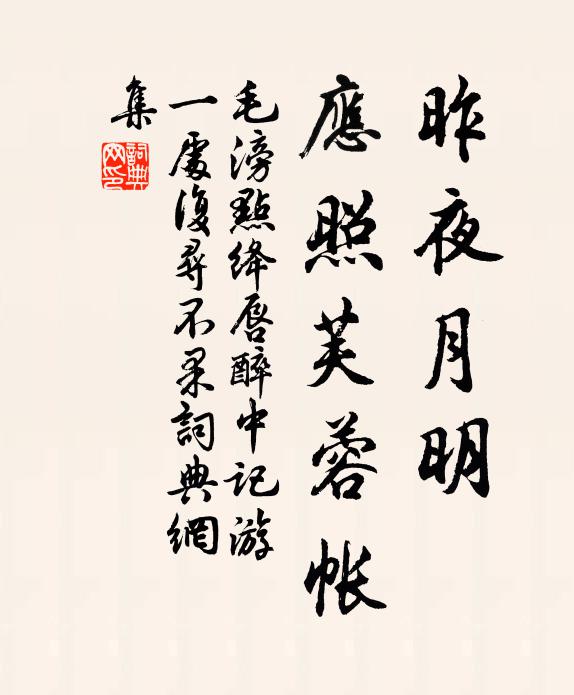 昨夜月明
應照芙蓉帳
毛滂點絳唇醉中記游
一處復尋不果詞典網
集
詞典網印